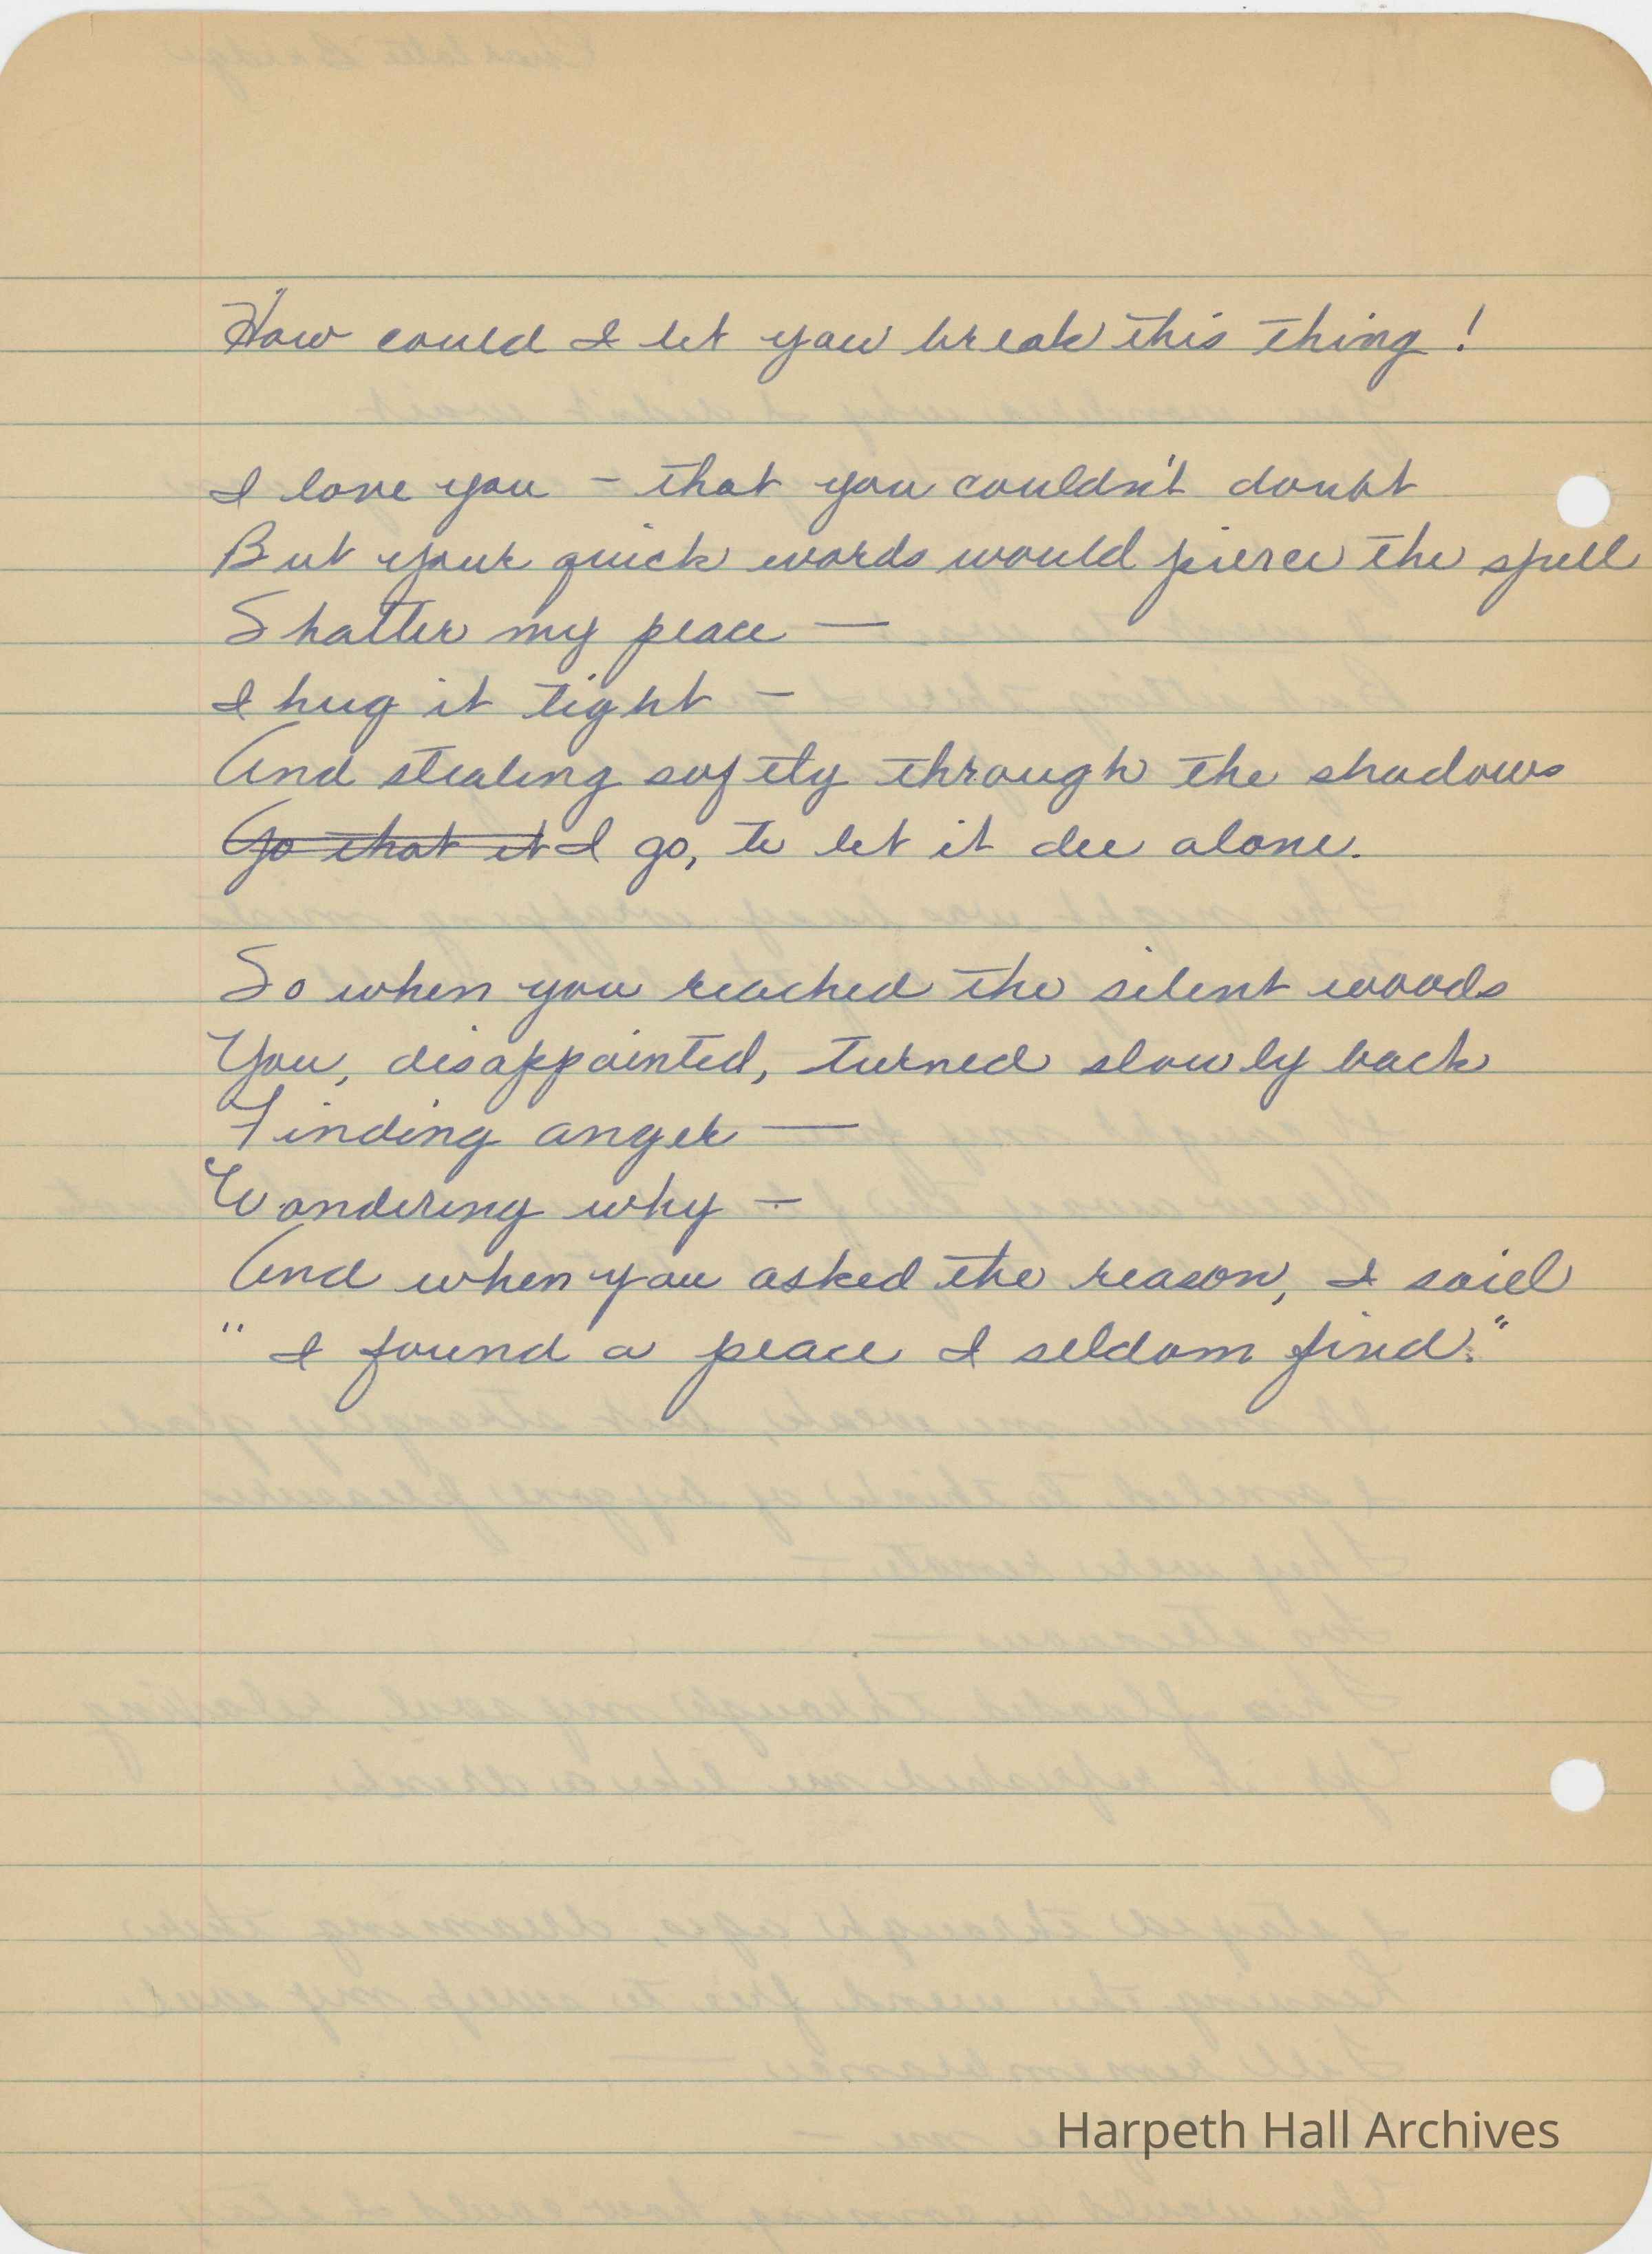 How could I let you break this thing!
I love you – that you couldn't doubt
But your quick words would pierce the spell
Shatter my peace —
I hug it tight –
And stealing softly through the shadows
Go that it I go, to let it die alone.
So when you reached the silent woods
You, disappointed, turned slowly back
Finding anger —
Wondering why –
And when you asked the reason, I said
"I found a peace I seldom find."
Harpeth Hall Archives